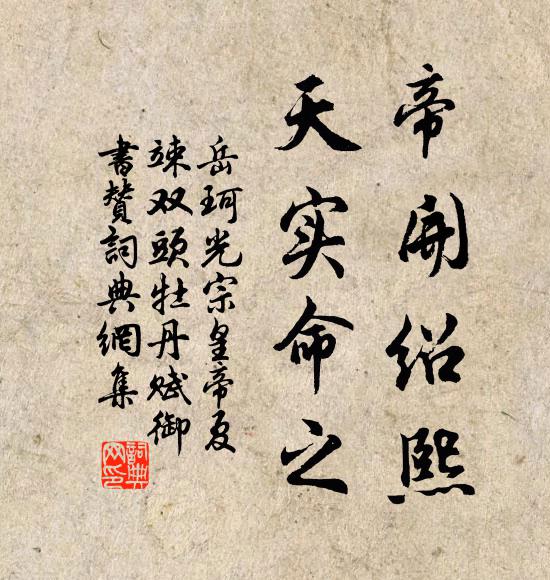 帝开绍熙
天实命之
岳珂光宗皇帝夏
竦双頭牡丹赋御
書赞詞典網集
詞典網印